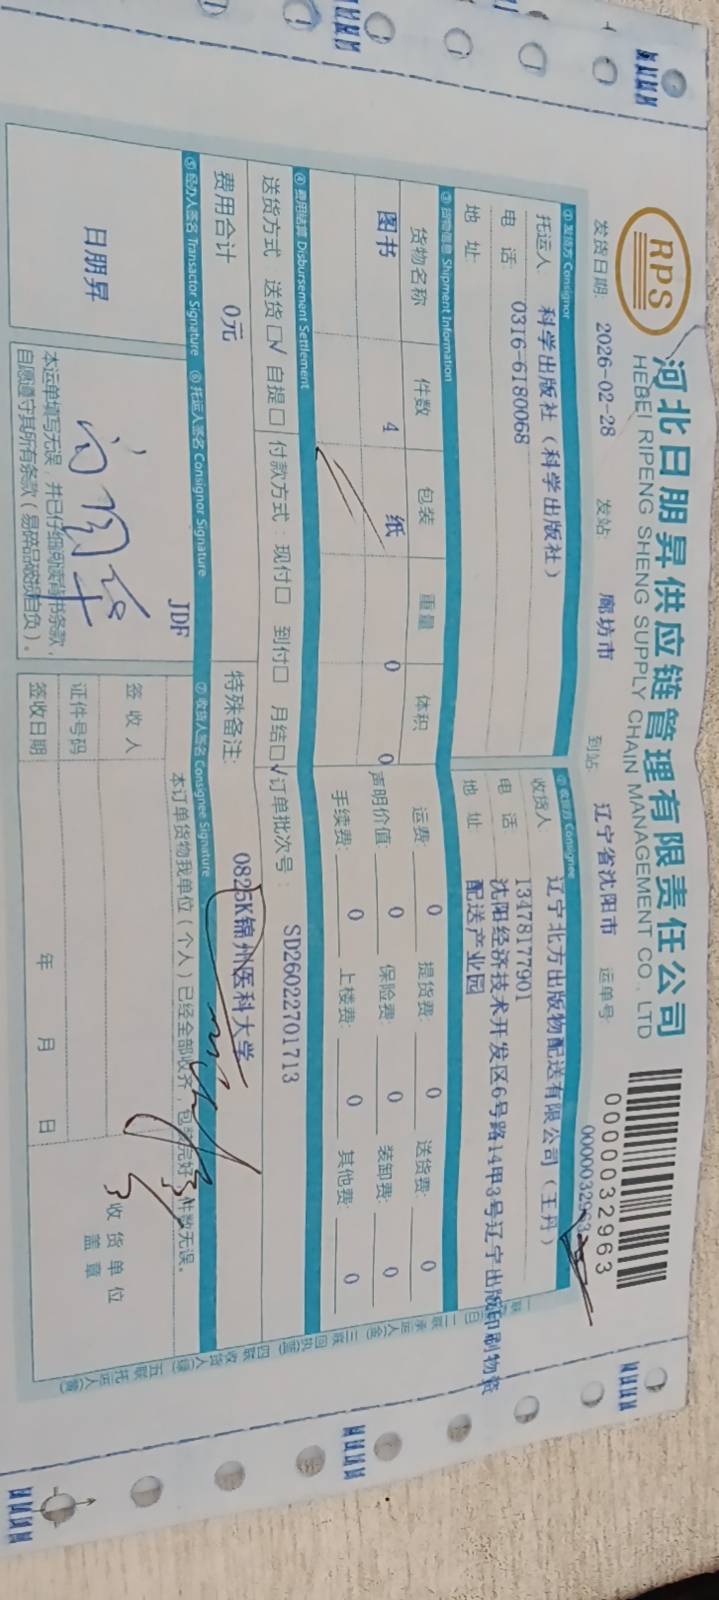 RPS
河北日朋昇供应链管理有限责任公司
HEBEI RIPENG SHENG SUPPLY CHAIN MANAGEMENT CO., LTD
0000032963
发货日期: 2026-02-28 发站: 廊坊市 到站: 辽宁省沈阳市 运单号: 0000032963
① 发货方 Consignor
托运人 科学出版社（科学出版社）
电 话: 0316-6180068
地 址:
② 收货方 Consignee
收货人 辽宁北方出版物配送有限公司（王丹）
电 话 13478177901
地 址 沈阳经济技术开发区6号路14甲3号辽宁出版印刷物资
配送产业园
③ 货物信息 Shipment Information
货物名称 件数 包装 重量 体积
图书 4 纸 0 0
运费: 0 提货费: 0 送货费: 0
声明价值: 0 保险费: 0 装卸费: 0
手续费: 0 上楼费: 0 其他费: 0
④ 费用结算 Disbursement Settlement
送货方式 送货□√ 自提□ 付款方式: 现付□ 到付□ 月结□√ 订单批次号: SD26022701713
费用合计 0元 特殊备注: 0825K锦州医科大学
⑤ 经办人签名 Transactor Signature ⑥ 托运人签名 Consignor Signature ⑦ 收货人签名 Consignee Signature
日朋昇
JDF
本运单填写无误，并已仔细阅读背书条款，
自愿遵守其所有条款（易碎品破损自负）。
本订单货物我单位（个人）已经全部收齐，包装完好，件数无误。
签收人
证件号码
签收日期 年 月 日
收货单位
盖章